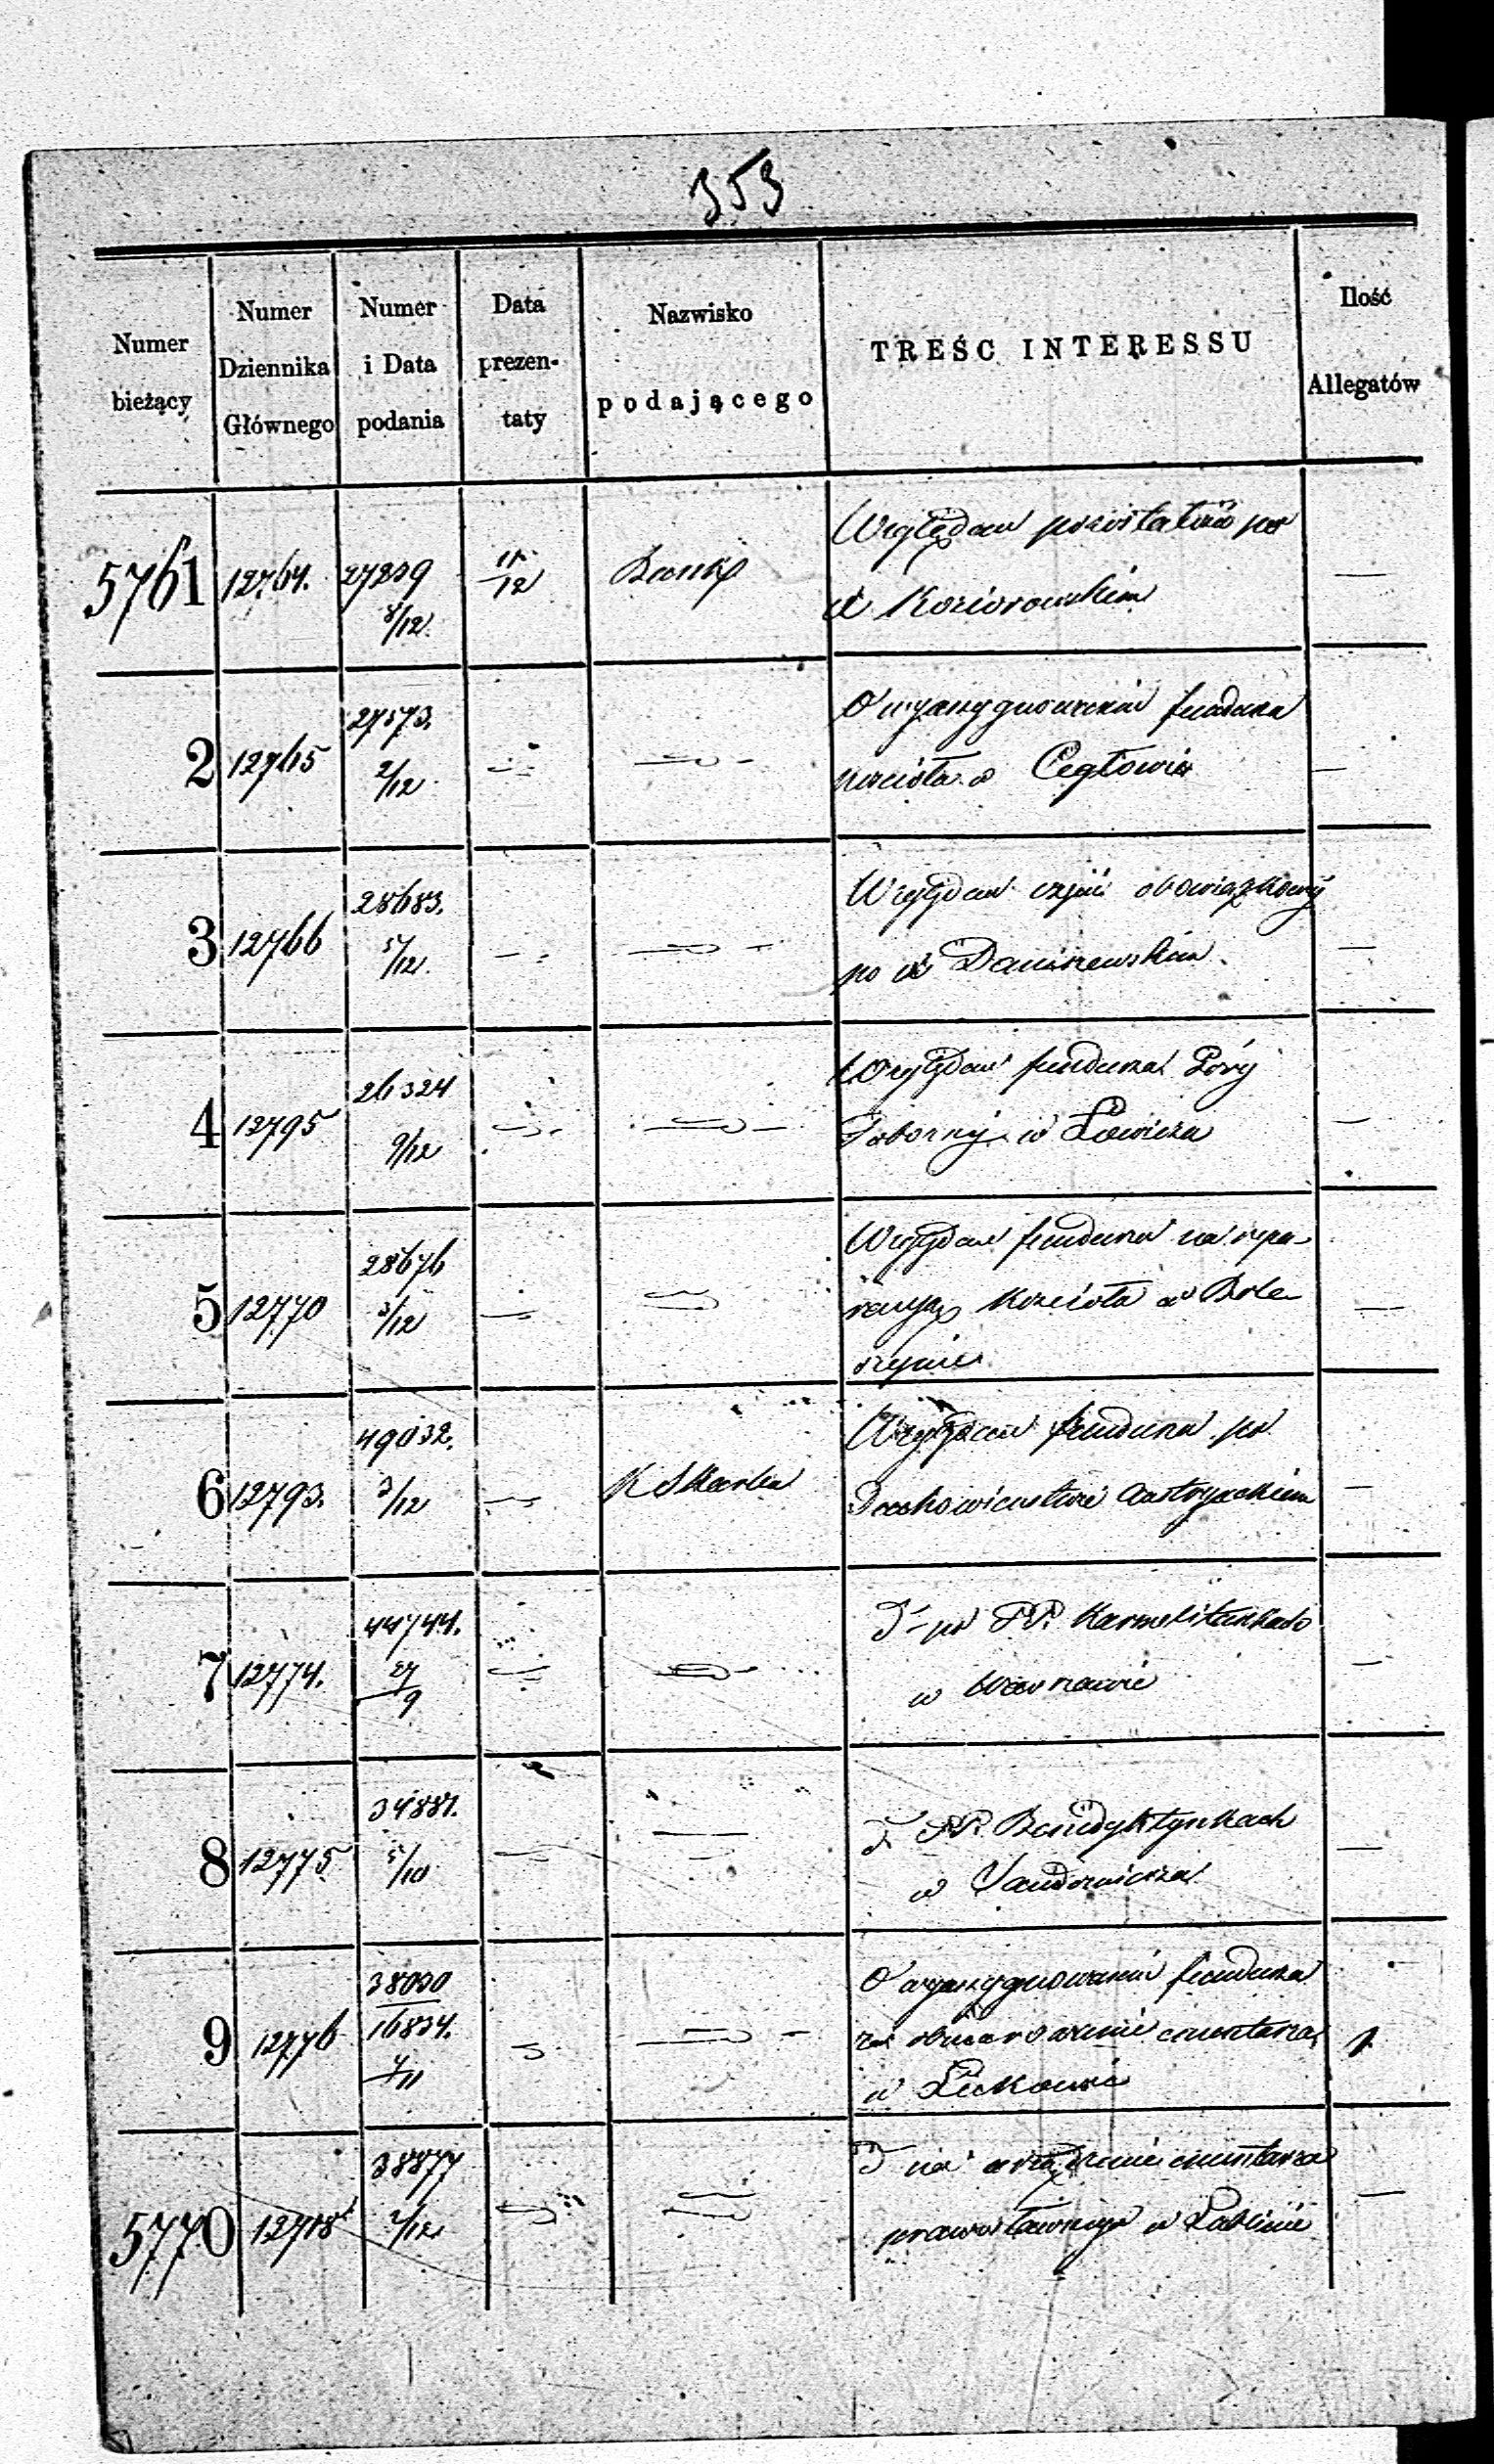 353
Numer bieżący
Numer Dziennika Głównego
Numer i Data podania
Data prezen-taty
Nazwisko podającego
TREŚC INTERESSU
Ilość Allegatów
5761 12764. 27239 8/12. 11/12 Bank Względem pozostałości po
X Koziorowskim —
2 12765 27573. 2/12 O wyasygnowanie fundusza
kościoła w Cegłowie —
3 12766 28683. 5/12. Względem części obowiązkowej
po X Daniszewskim. —
4 12795 26324 9/12 Względem fundusza
w Łowiczu —
5 12770 28676 3/12 Względem fundusza na repa-
racyę kościoła w Bole-
szynie —
6 12793. 49032. 3/12 K Skarbu Względem fundusza po
Duchowieństwie Austryackiem —
7 12774. 44744. 27/9 D- po PP. Karmelitankach
w Warszawie —
8 12775 34887. 5/10 D. PP. Benedyktynkach
w Sandomierzu —
9 12776 38030 16834. 4/11 O wyasygnowanie fundusza
na cmentarza 1.
w
5770 38877 2/12 D na urządzenie cmentarza
prawosławnego w Lublinie —